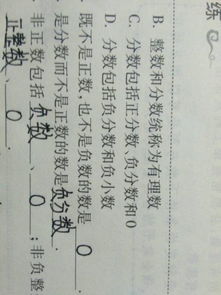 练
B. 整数和分数统称为有理数
C. 分数包括正分数、负分数和0
D. 分数包括负分数和负小数
既不是正数，也不是负数的数是 0 .
是分数而不是正数的数是负分数.
非正数包括负数、 0 ；非负整
正整数、 0 .